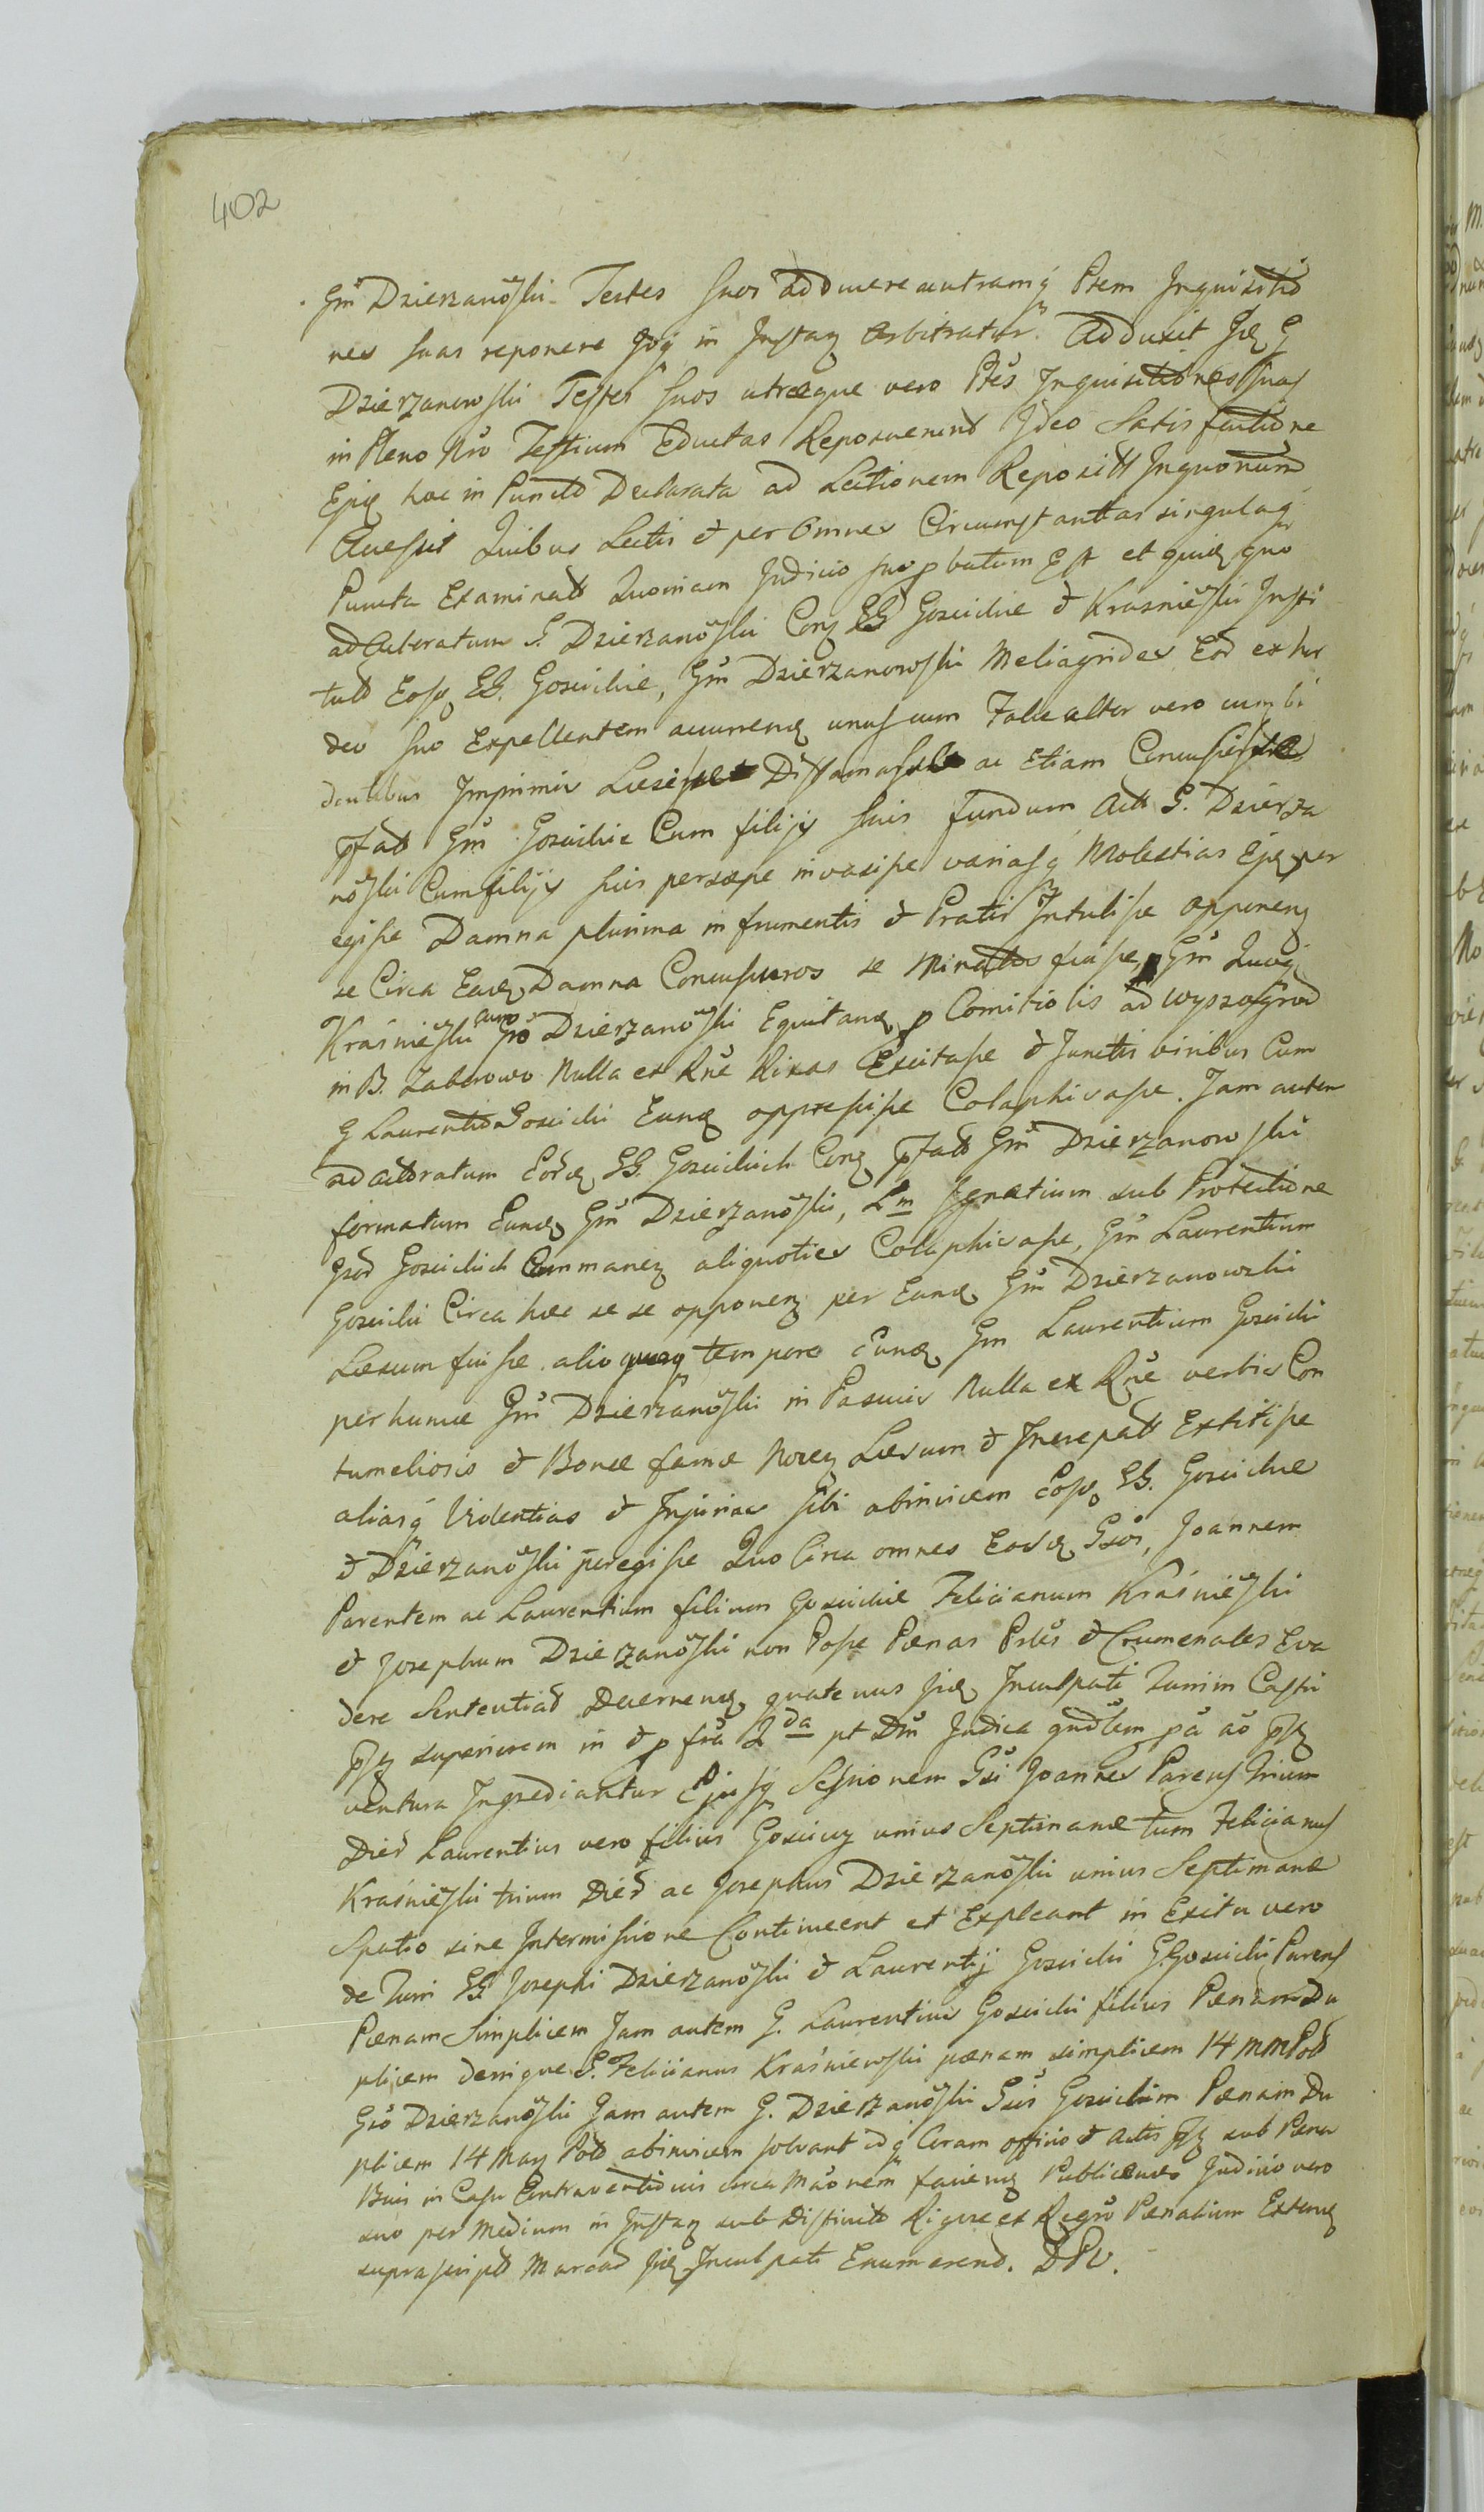 402
Gm Dzierzanoski Testes suos adducere utramq Ptem Inquisitio
nes suas reponere in Instan arbitratur. Adduxit G
Dzierzanowski Testes suos utraeque vero Ptes Inquisitiones suas
in Pleno Nro Testium Eductas Reposuerunt Ideo Satisfactione
Ejq hoc in Puncto Declarata ad Lectionem Reposit Inquonum
Accessit Quibus Lectis et per Omnes Circumstantias singulaq
Puncta Examinatt Quoniam Judicio suo pbatum Est et quia quo
ad Actoratum G. Dzierzanoski Con GG Gosickie et Krasnieski Insti
tutt Eosq GG. Gosickie, Gm Dzierzanowski Meliagrides Eod ex hor
deo suo Expellentem accurren unus cum Falce alter vero cum bi
dentibus Imprimis Laesisse Diffamasse ac Etiam Concussisse
Gm Gosickie Cum filijs suis fundum Act G. Dzierza
noski Cum filijs suis persaepe invasisse variasq Molestias Ejq per
egisse Damna plurima in frumentis et Pratis Intulisse opponen
se Circa Eadem Damna Concussuros se Minatos fuisse, Gm Quoq
Kraśnieski cum Gro Dzierzanoski Equitan p Comitiolis ad Wyszogrod
in B. Zaborowo Nulla ex Rne Rixas Excitasse et Junctis viribus Cum
G Laurentio Gosicki Eund oppressisse Colaphisasse. Jam autem
ad actoratum Eord GG. Gosickich Con Gm Dzierzanowski
formatum Eund Gm Dzierzanoski, Lm Ignatium sub Protectione
Gsor Gosickich Commanen aliquoties Colaphisasse, Gm Laurentium
Gosicki Circa haec se se opponen per Eund Gm Dzierzanowski
Laesum fuisse alio quoq tempore Eund Gm Laurentium Gosicki
per hunc Gm Dzierzanoski in Pascuis Nulla ex Rne verbis Con
tumeliosis et Bonae famae Nocen Laesum et Increpatt Extitisse
aliasq Violentias et Injurias sibi abinvicem Eosq GG. Gosickie
et Dzierzanoski peregisse Quo Circa omnes Eosd Gsos, Joannem
Parentem ac Laurentium filium Gosickie Felicianum Kraśnieski
et Josephum Dzierzanoski non Posse Poenas Prles et Crumenales Eva
dere Sententiat Decernend quatenus Inculpati Turrim Castri
superiorem in et p fra 2da pt Dm Judica
ventura Ingrediantur Ejusq Sessionem Gsi Joannes Parens Trium
Dier Laurentius vero filius Gosicky unius Septimanae tum Felicianus
Kraśnieski trium Dier ac Josephus Dzierzanoski unius Septimanae
Spatio sine Intermissione Contineant et Expleant in Exitu vero
de Turri GG Josephi Dzierzanoski et Laurentij Gosicki G. Gosicki Parens
Poenam Simplicem Jam autem G. Laurentius Gosicki filius Poenam Du
plicem denique G. Felicianus Kraśniewski poenam simplicem 14 MM Pol
Gso Dzierzanoski Jam autem G. Dzierzanoski Gsis Gosickim Poenam Du
plicem 14 Mar Pol abinvicem solvant idq Coram officio et Actis sub Poena
Bnis in Casu Contraventionis circa Maonem facien Publicand Judicio vero
suo per Medium in Instan sub Distincto Rigore ex Regro Poenalium Exten
suprascript Marcas Inculpati Enumerend. DPV.